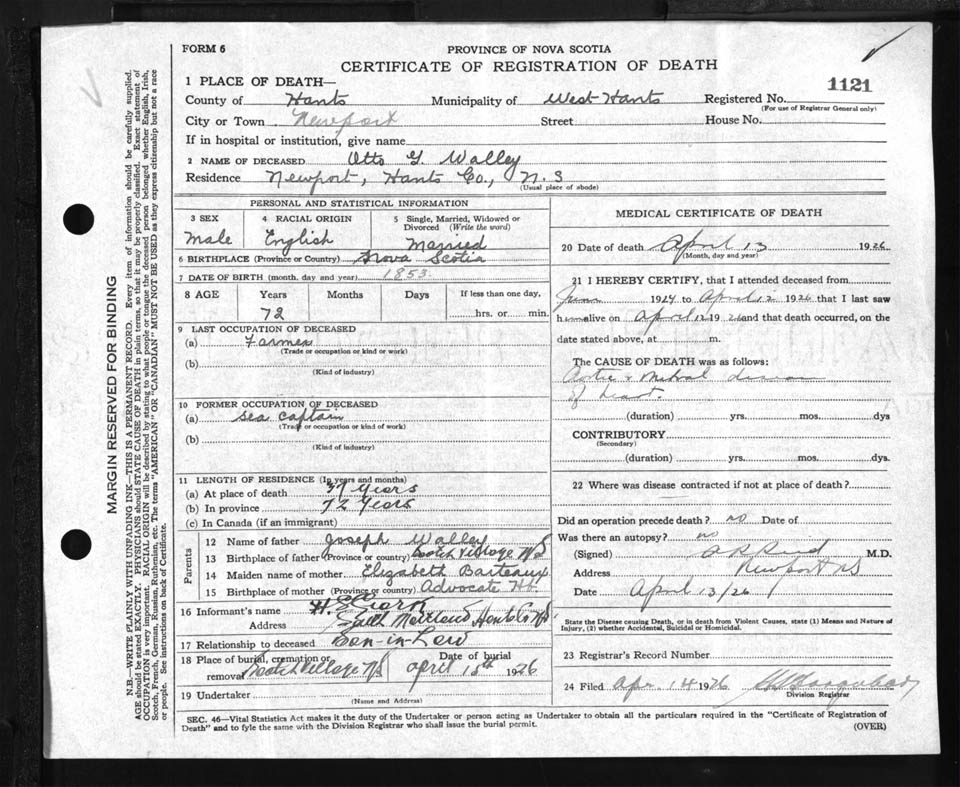 FORM 6
PROVINCE OF NOVA SCOTIA
CERTIFICATE OF REGISTRATION OF DEATH
1 PLACE OF DEATH—
1121
County of Hants Municipality of West Hants Registered No.
(For use of Registrar General only)
City or Town Newport Street House No.
If in hospital or institution, give name
2 NAME OF DECEASED Otto G. Walley
Residence Newport, Hants Co., N.S
(Usual place of abode)
PERSONAL AND STATISTICAL INFORMATION
3 SEX Male
4 RACIAL ORIGIN English
5 Single, Married, Widowed or Divorced (Write the word) Married
6 BIRTHPLACE (Province or Country) Nova Scotia
7 DATE OF BIRTH (month, day and year) 1853
8 AGE Years Months Days If less than one day,
72 hrs. or min.
9 LAST OCCUPATION OF DECEASED
(a) Farmer
(Trade or occupation or kind or work)
(b)
(Kind of industry)
10 FORMER OCCUPATION OF DECEASED
(a) Sea Captain
(Trade or occupation or kind of work)
(b)
(Kind of industry)
11 LENGTH OF RESIDENCE (In years and months)
(a) At place of death 37 Years
(b) In province 72 Years
(c) In Canada (if an immigrant)
Parents
12 Name of father Joseph Walley
13 Birthplace of father (Province or country) Scotch Village NS
14 Maiden name of mother Elizabeth Barteaux
15 Birthplace of mother (Province or country) Advocate Hb.
16 Informant's name H.
Address South Maitland Hants Co NS
17 Relationship to deceased Son-in-Law
18 Place of burial, cremation or removal Scotch Village NS Date of burial April 15th 1926
19 Undertaker
(Name and Address)
MEDICAL CERTIFICATE OF DEATH
20 Date of death April 13 1926
(Month, day and year)
21 I HEREBY CERTIFY, that I attended deceased from
June 1924 to April 12 1926 that I last saw
him alive on April 12 1926 and that death occurred, on the
date stated above, at m.
The CAUSE OF DEATH was as follows:
Aortic + Mitral disease
of heart.
(duration) yrs. mos. dys
CONTRIBUTORY
(Secondary)
(duration) yrs. mos. dys.
22 Where was disease contracted if not at place of death?
Did an operation precede death? no Date of
Was there an autopsy? no
(Signed) M.D.
Address Newport NS
Date April 13/26
State the Disease causing Death, or in death from Violent Causes, state (1) Means and Nature of
Injury, (2) whether Accidental, Suicidal or Homicidal.
23 Registrar's Record Number
24 Filed Apr. 14 1926
Division Registrar
SEC. 46—Vital Statistics Act makes it the duty of the Undertaker or person acting as Undertaker to obtain all the particulars required in the "Certificate of Registration of
Death" and to fyle the same with the Division Registrar who shall issue the burial permit.
(OVER)
MARGIN RESERVED FOR BINDING
N.B.—WRITE PLAINLY WITH UNFADING INK—THIS IS A PERMANENT RECORD. Every item of information should be carefully supplied.
AGE should be stated EXACTLY. PHYSICIANS should STATE CAUSE OF DEATH in plain terms, so that it may be properly classified. Exact statement of
OCCUPATION is very important. RACIAL ORIGIN will be described by stating to what people or tongue the deceased person belonged whether English, Irish,
Scotch, French, German, Russian, Ruthenian, etc. The terms "AMERICAN" OR "CANADIAN" MUST NOT BE USED as they express citizenship but not a race
or people. See instructions on back of Certificate.